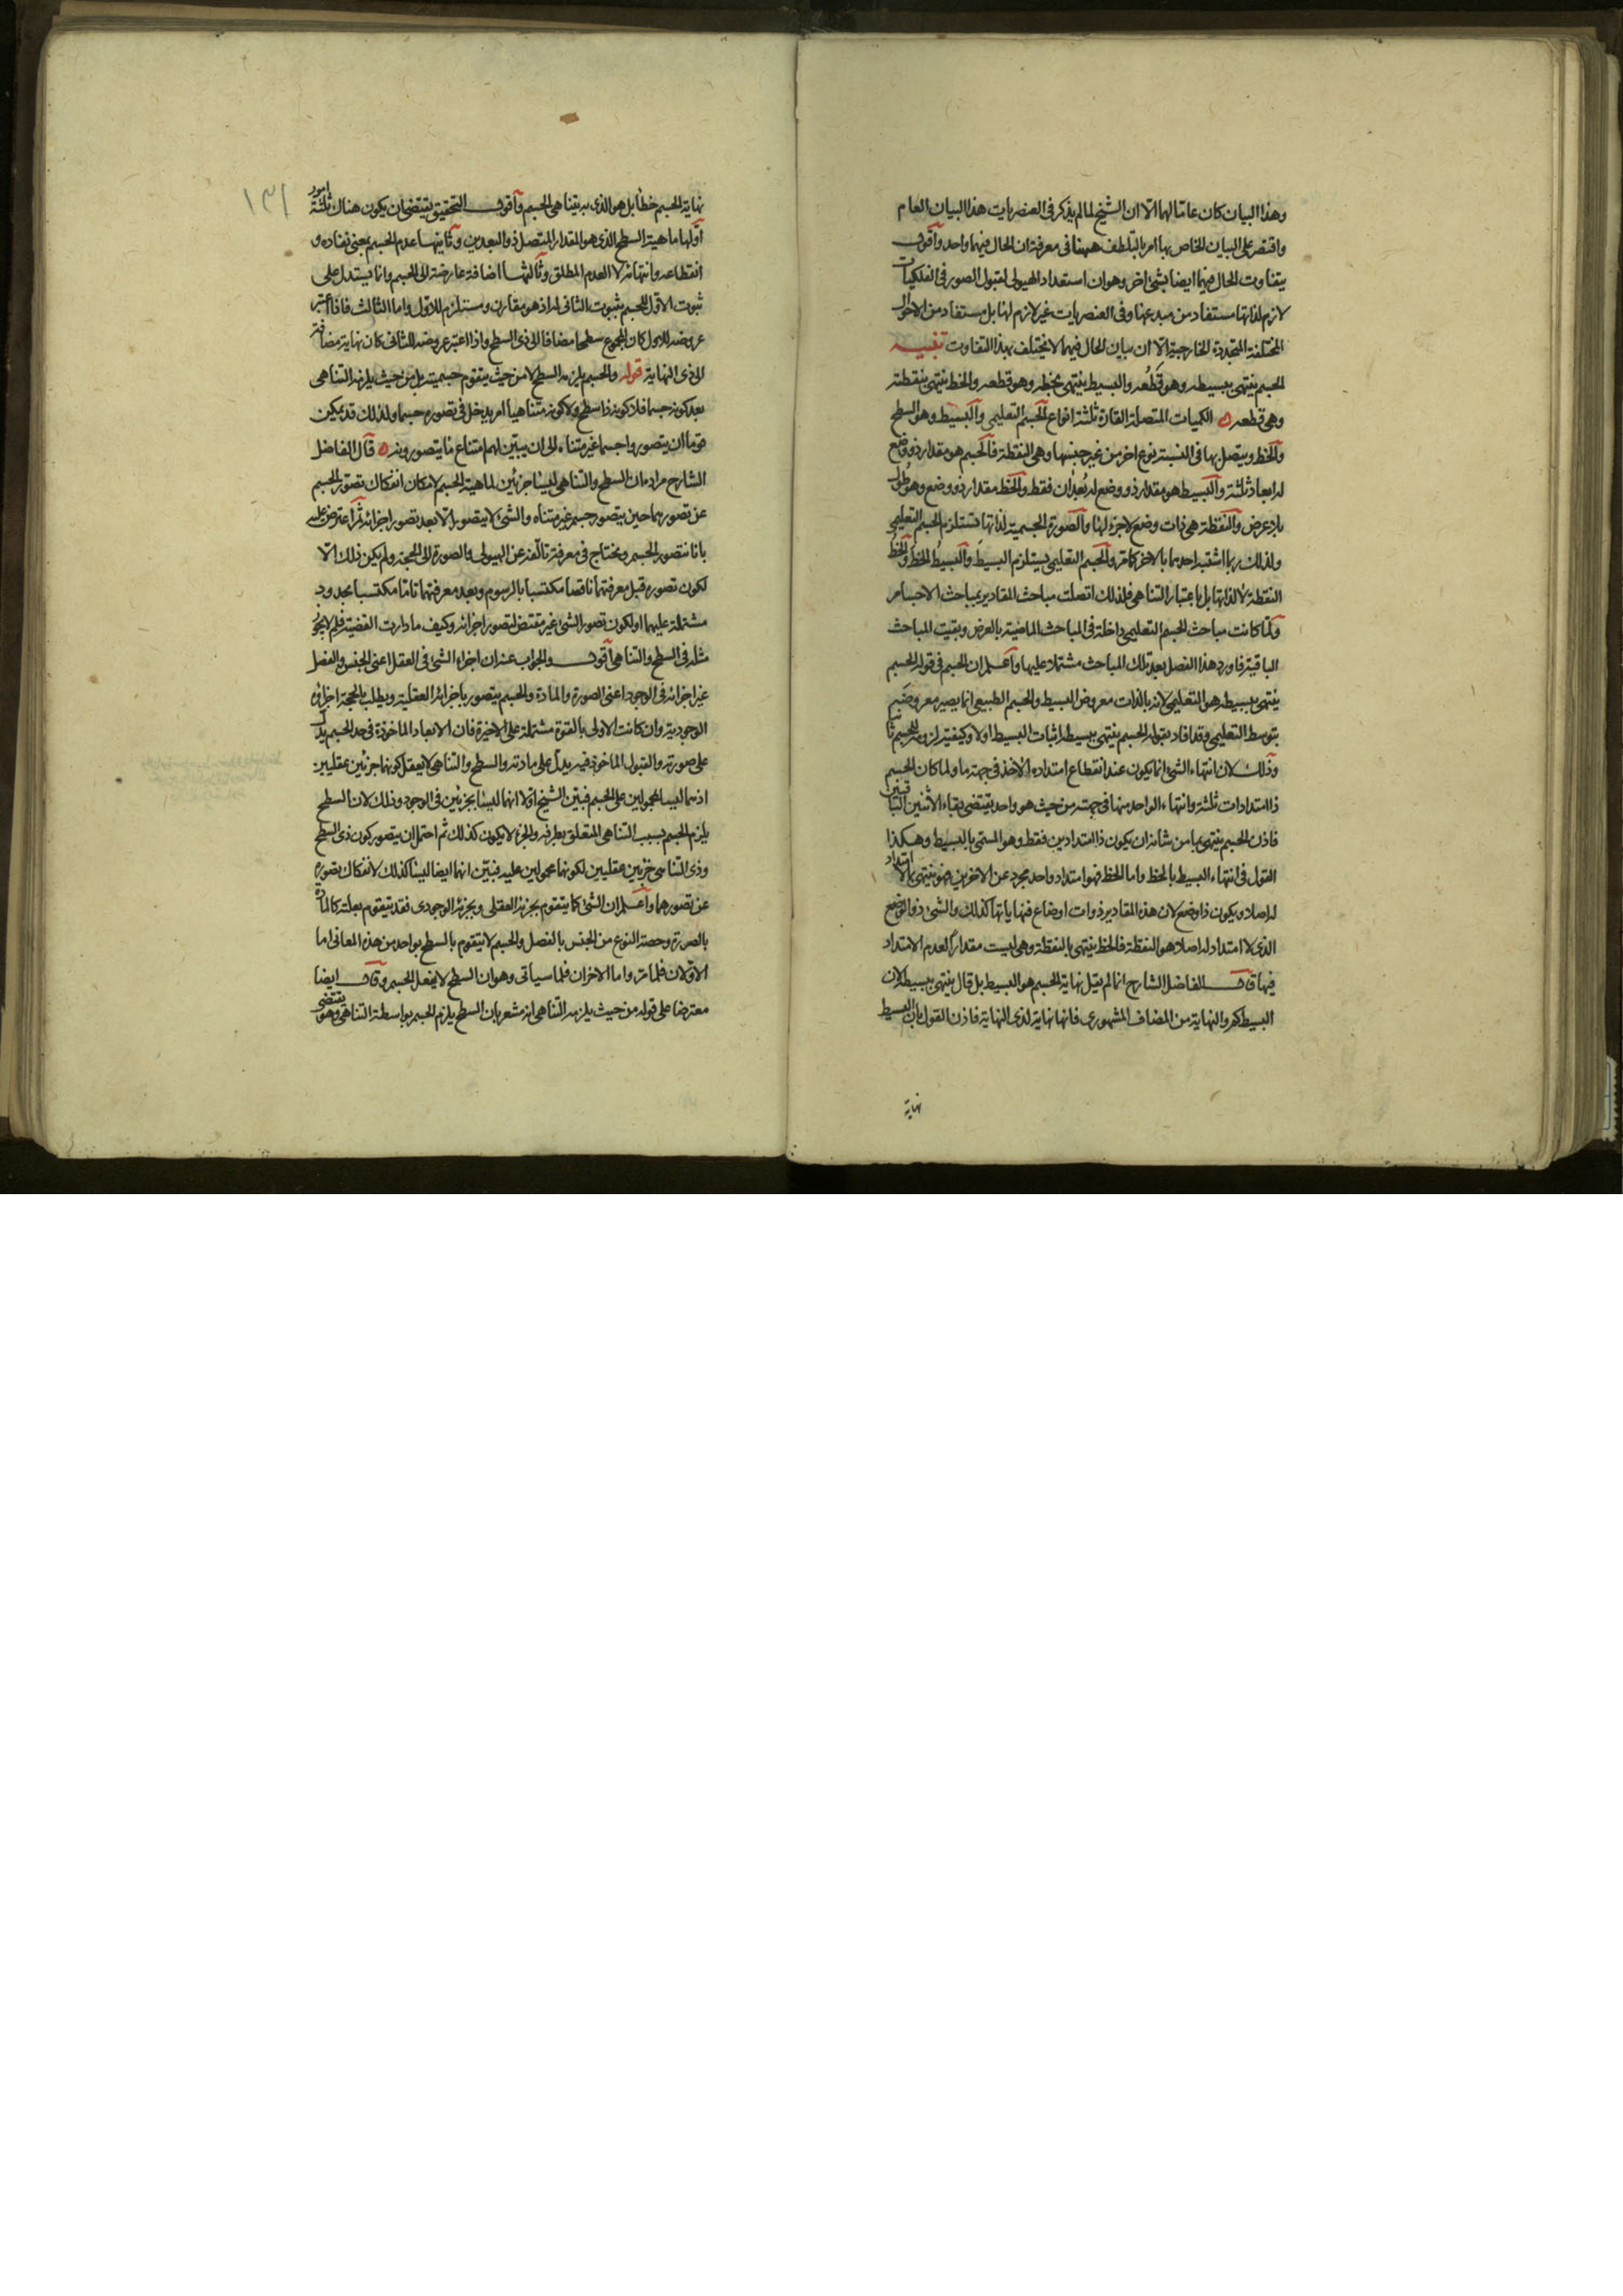 وهذا البيان كان عاما لهما الا ان الشيخ لما لم يذكر في العنصريات هذا البيان العام
واقتصر على البيان الخاص بها امر بالتلطف ههنا في معرفة ان الحال فيهما واحد واقول
يتفاوت الحال فيهما ايضا بشئ اخر وهو ان استعداد الهيولى لقبول الصور في الفلكيات
لازم لذاتها مستفاد من مبدعها وفي العنصريات غير لازم لها بل مستفاد من الاحوال
المختلفة المتجددة الخارجية الا ان بيان الحال فيهما لا يختلف بهذا التفاوت تنبيه
الجسم ينتهى ببسيطه وهو قطعه والبسيط ينتهى بخطه وهو قطعه والخط ينتهى بنقطته
وهى قطعه ه الكميات المتصلة القارة ثلثة انواع الجسم التعليمى والبسيط وهو السطح
والخط ويتصل بها في النسبة نوع اخر من غير جنسها وهى النقطة فالجسم هو مقدار ذو وضع
له ابعاد ثلثة والبسيط هو مقدار ذو وضع له بعدان فقط والخط مقدار ذو وضع وهو طول
بلا عرض والنقطة هى ذات وضع لا جزء لها والصورة الجسمية لذاتها تستلزم الجسم التعليمى
ولذلك ربما اشتبه احدهما بالاخر كما مر والجسم التعليمى يستلزم البسيط والبسيط الخط والخط
النقطة لا لذاتها بل باعتبار التناهى فلذلك اتصلت مباحث المقادير بمباحث الاجسام
ولما كانت مباحث الجسم التعليمى داخلة في المباحث الماضية بالعرض وبقيت المباحث
الباقية فاورد هذا الفصل بعد تلك المباحث مشتملا عليها واعلم ان الجسم في قوله الجسم
ينتهى ببسيطه هو التعليمى لانه بالذات معروض البسيط والجسم الطبيعى انما يصير معروضه
بتوسط التعليمى وقد افاد بقوله الجسم ينتهى ببسيطه اثبات البسيط اولا وكيفية لزومه للجسم ثانيا
وذلك لان انتهاء الشئ انما يكون عند انقطاع امتداده الاخذ في جهة ما ولما كان الجسم
ذا امتدادات ثلثة وانتهاء الواحد منها في جهته من حيث هو واحد يقتضى بقاء الاثنين الباقيين
فاذن الجسم ينتهى بما من شانه ان يكون ذا امتدادين فقط وهو المسمى بالبسيط وهكذا
القول في انتهاء البسيط بالخط واما الخط فهو امتداد واحد مجرد عن الاخرين فهو ينتهى بما لا امتداد
له اصلا ويكون ذا وضع لان هذه المقادير ذوات اوضاع فنهاياتها كذلك والشئ ذو الوضع
الذى لا امتداد له اصلا هو النقطة فالخط ينتهى بالنقطة وهى ليست مقدارا لعدم الامتداد
فيها قال الفاضل الشارح انما لم يقل نهاية الجسم هو البسيط بل قال ينتهى ببسيطه لان
البسيط كم والنهاية من المضاف المشهورى فانها نهاية لذى النهاية فاذن القول بان البسيط
نهاية
١٣١
نهاية الجسم خطأ بل هو الذى به يتناهى الجسم واقول التحقيق يقتضى ان يكون هناك ثلثة امور
اولها ماهية السطح الذى هو المقدار المتصل ذو البعدين وثانيها عدم الجسم بمعنى نفاده و
انقطاعه وانتهائه لا العدم المطلق وثالثها اضافة عارضة الى الجسم وانما يستدل على
ثبوت الاول للجسم بثبوت الثانى له اذ هو مقارن ومستلزم للاول واما الثالث فاذا اعتبر
عروضه للاول كان المجموع سطحا مضافا الى ذى السطح واذا اعتبر عروضه للثانى كان نهاية مضافة
الى ذى النهاية قوله والجسم يلزمه السطح لا من حيث يتقوم جسميته بل من حيث يلزمه التناهى
بعد كونه جسما فلا كونه ذا سطح ولا كونه متناهيا امر يدخل في تصوره جسما ولذلك قد يمكن
قوما ان يتصوروا جسما غير متناه الى ان يبين لهم امتناع ما يتصورونه ه قال الفاضل
الشارح مراده ان السطح والتناهى ليسا جزئين لماهية الجسم لامكان انفكاك تصور الجسم
عن تصورهما حين يتصور جسم غير متناه والشئ لا يتصور الا بعد تصور اجزائه ثم اعترض عليه
بانا نتصور الجسم ونحتاج في معرفة تالفه عن الهيولى والصورة الى الحجة ولم يكن ذلك الا
لكون تصوره قبل معرفتهما ناقصا مكتسبا بالرسوم وبعد معرفتهما تاما مكتسبا بحدود
مشتملة عليهما او لكون تصور الشئ غير مقتض لتصور اجزائه وكيف ما دارت القضية فلم لا يجوز
مثله في السطح والتناهى اقول والجواب عنه ان اجزاء الشئ في العقل اعنى الجنس والفصل
غير اجزائه في الوجود اعنى الصورة والمادة والجسم يتصور باجزائه العقلية ويطلب بالحجة اجزائه
الوجودية وان كانت الاولى بالقوة مشتملة على الاخيرة فان الابعاد الماخوذة في حد الجسم يدل
على صورته والقبول الماخوذ فيه يدل على مادته والسطح والتناهى لا يعقل كونهما جزئين عقليين
اذ هما ليسا بمحمولين على الجسم فبين الشيخ اولا انهما ليسا بجزئين في الوجود وذلك لان السطح
يلزم الجسم بسبب التناهى المتعلق بطرفه والجزء لا يكون كذلك ثم احتمل ان يتصور كون ذى السطح
وذى التناهى جزئين عقليين لكونهما محمولين عليه فبين انهما ايضا ليسا كذلك لانفكاك تصوره
عن تصورهما واعلم ان الشئ كما يتقوم بجزئه العقلى وبجزئه الوجودى فقد يتقوم بعلته كالمادة
بالصورة وحصة النوع من الجنس بالفصل والجسم لا يتقوم بالسطح بواحد من هذه المعانى اما
الاولان فلما مر واما الاخران فلما سياتى وهو ان السطح لا يفعل الجسم وقال ايضا
معترضا على قوله من حيث يلزمه التناهى انه مشعر بان السطح يلزم الجسم بواسطة التناهى وهو يقتضى